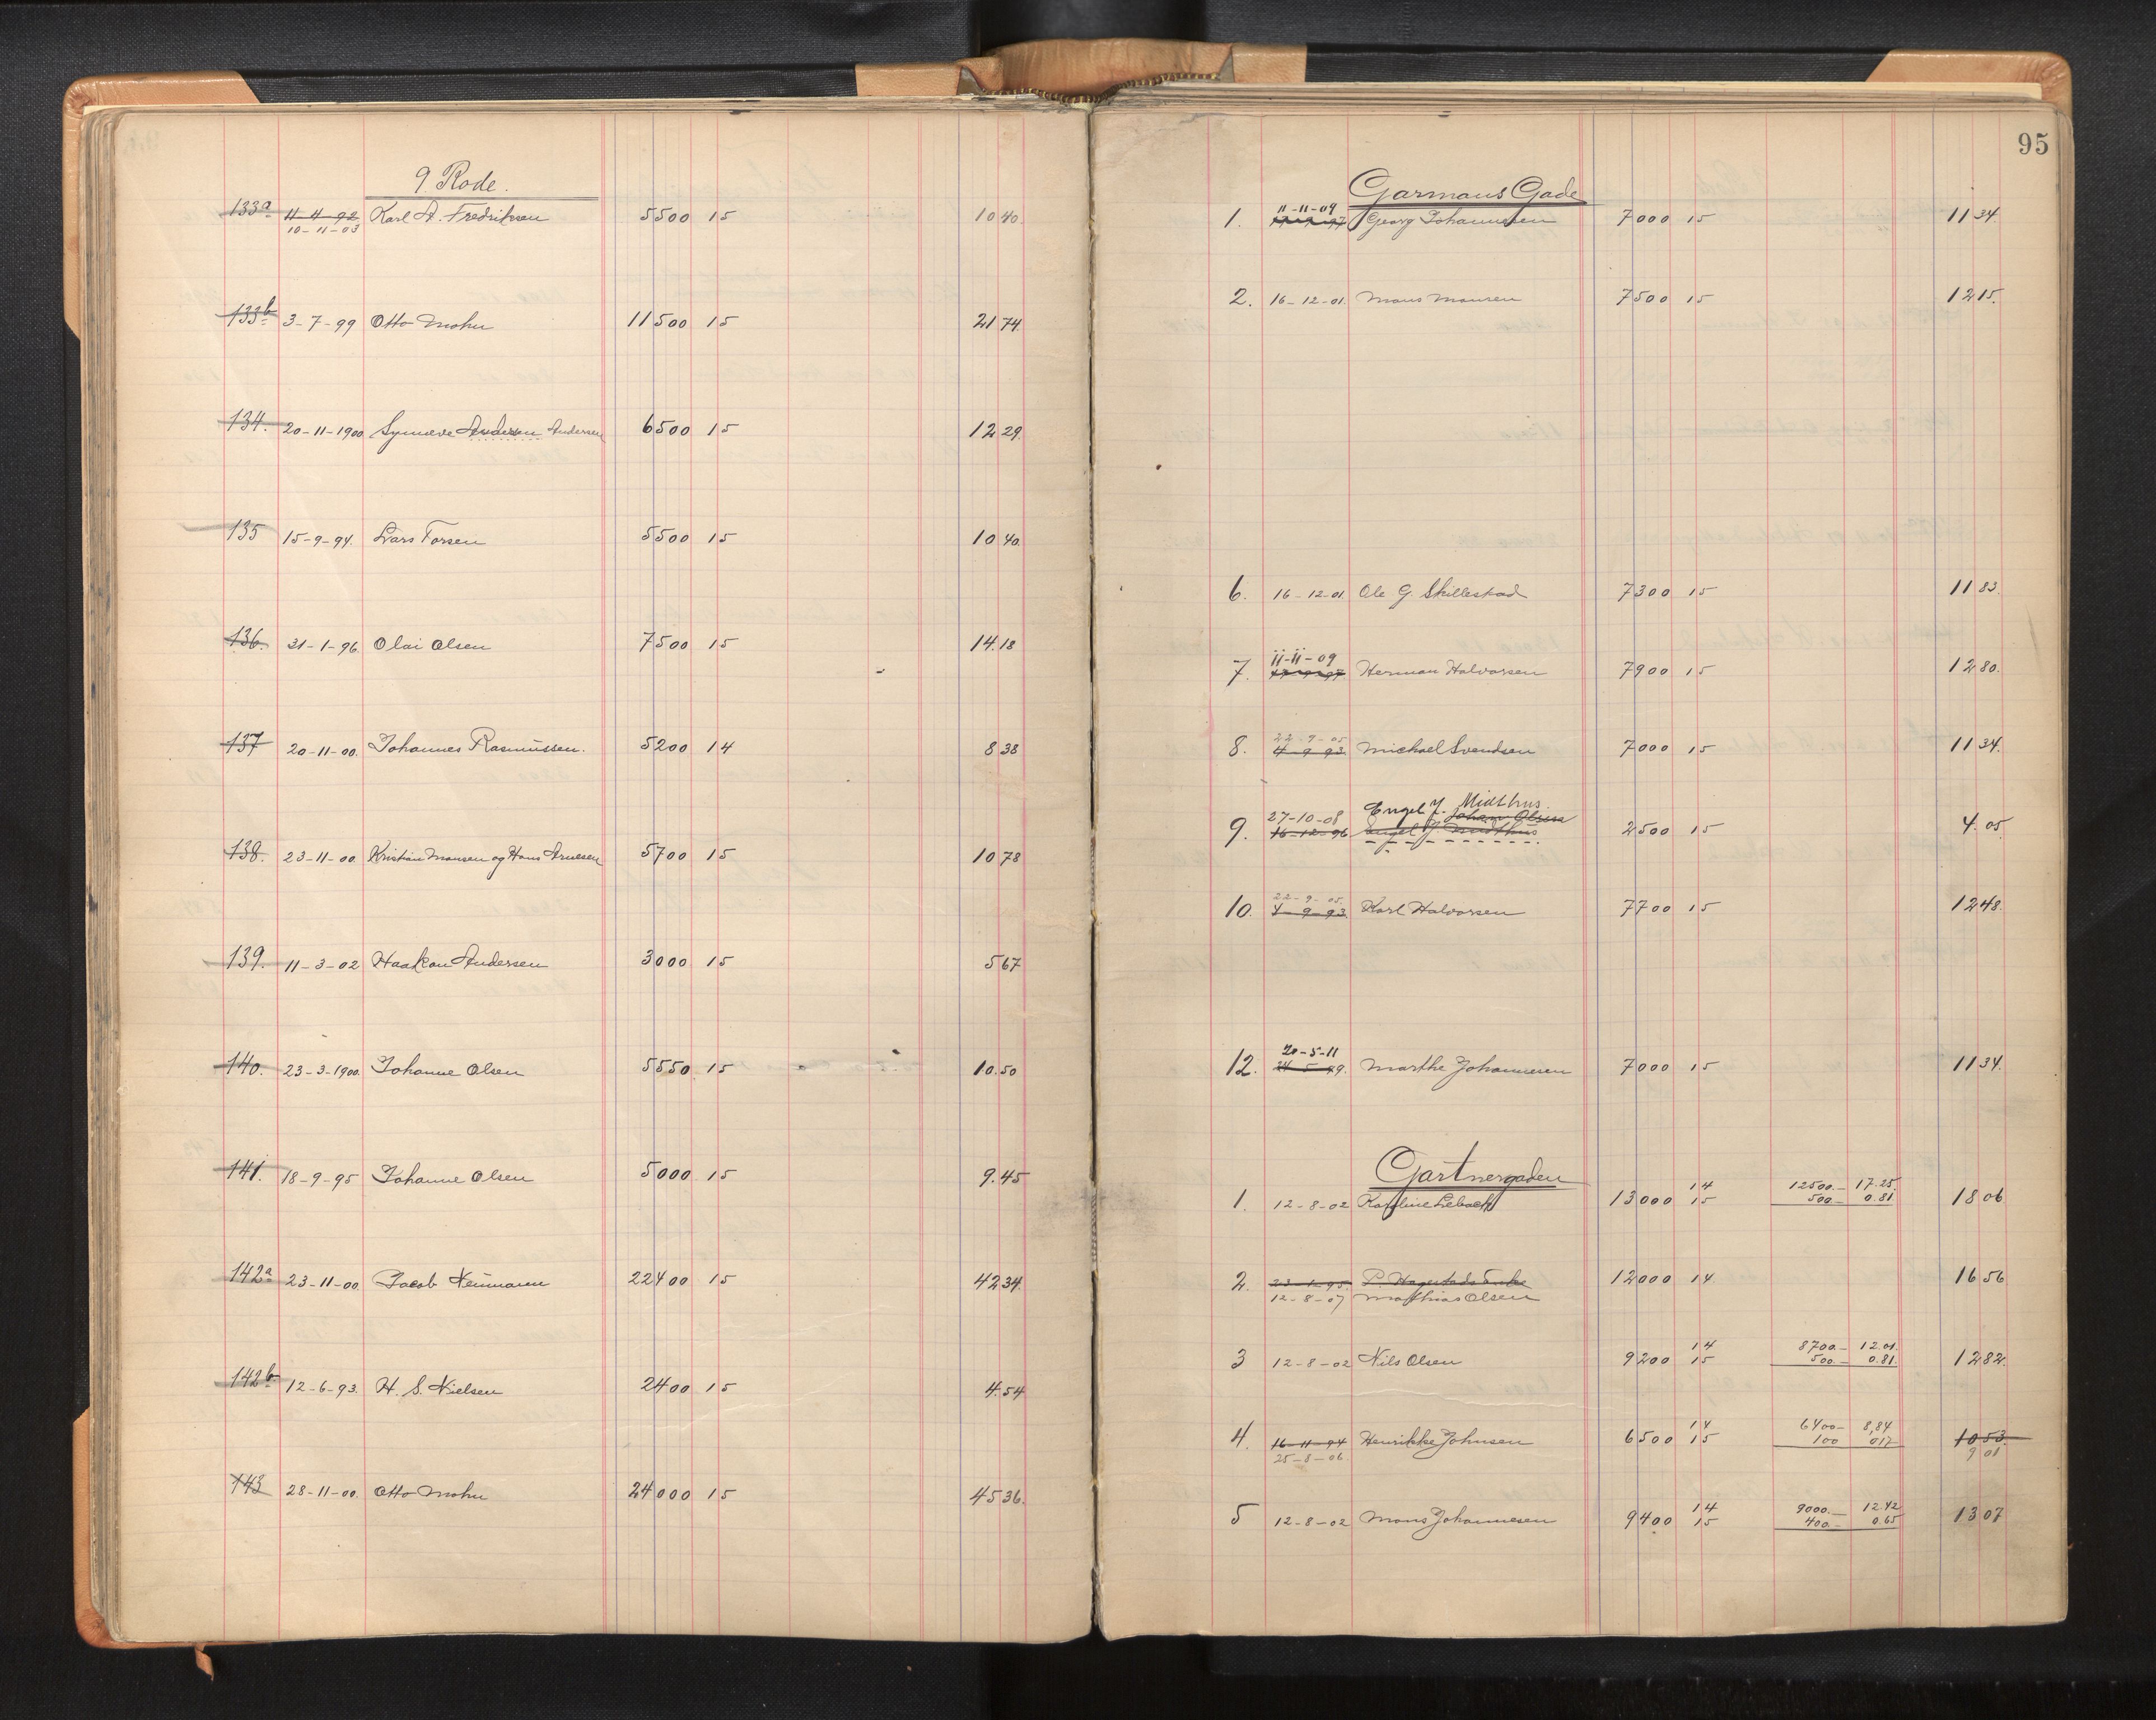 9 Rode.
133a 11-4-92 Karl A. Fredriksen 5500 15 10 40.
10-11-03
133b 3-7-99 Otto Mohn 11500 15 21 74.
134. 20-11-1900 Synneve Andersen Andersen 6500 15 12 29.
135 15-9-94. Lars Forsen 5500 15 10 40.
136. 31-1-96 Olai Olsen 7500 15 14.18
137 20-11-00. Johannes Rasmussen. 5200 14 8 38
138. 23-11-00. Kristian Monsen og Hans Arnesen 5700 15 10 78
139. 11-3-02 Haakon Andersen 3000 15 5 67
140. 23-3-1900. Johanne Olsen 5550 15 10.50
141. 18-9-95 Johanne Olsen 5000 15 9.45
142a 23-11-00. Jacob Neumann 22400 15 42 34.
142b 12-6-93. H. S. Nielsen 2400 15 4.54
143 28-11-00. Otto Mohn 24000 15 45 36.
95
Garmans Gade
11-11-09
1. Georg Johannesen 7000 15 11 34.
2. 16-12-01. Mons Monsen 7500 15 12 15.
6. 16-12-01. Ole G. Skillestad 7300 15 11 83.
11-11-09
7. Herman Halvorsen 7900 15 12 80.
22-9-05
8. 4-9-93. Michael Svendsen 7000 15 11 34.
Engel J. Midthus.
27-10-08 Johan Olsen
9. 16-12-96 Engel J. Midthus 2500 15 4.05
22-9-05.
10. 4-9-93 Karl Halvorsen 7700 15 12 48.
20-5-11
12. 24-5-99. Marthe Johannesen 7000 15 11 34.
Gartnergaden
14 12500.- 17.25.
1. 12-8-02 Karoline 13000 15 500.- 0.81 18 06
2. 23-1-95. P. Hagestads Enke 12000 14 16 56
12-8-07 Mathias Olsen
14 8700.- 12.01.
3 12-8-02 Nils Olsen 9200 15 500.- 0.81. 12 82.
14 6400- 8,84
4. 16-11-94 Henrikke Johnsen 6500 15 100 017 10 53.
25-8-06. 9 01
14 9000.- 12.42
5 12-8-02 Mons Johannesen 9400 15 400.- 0.65 13 07